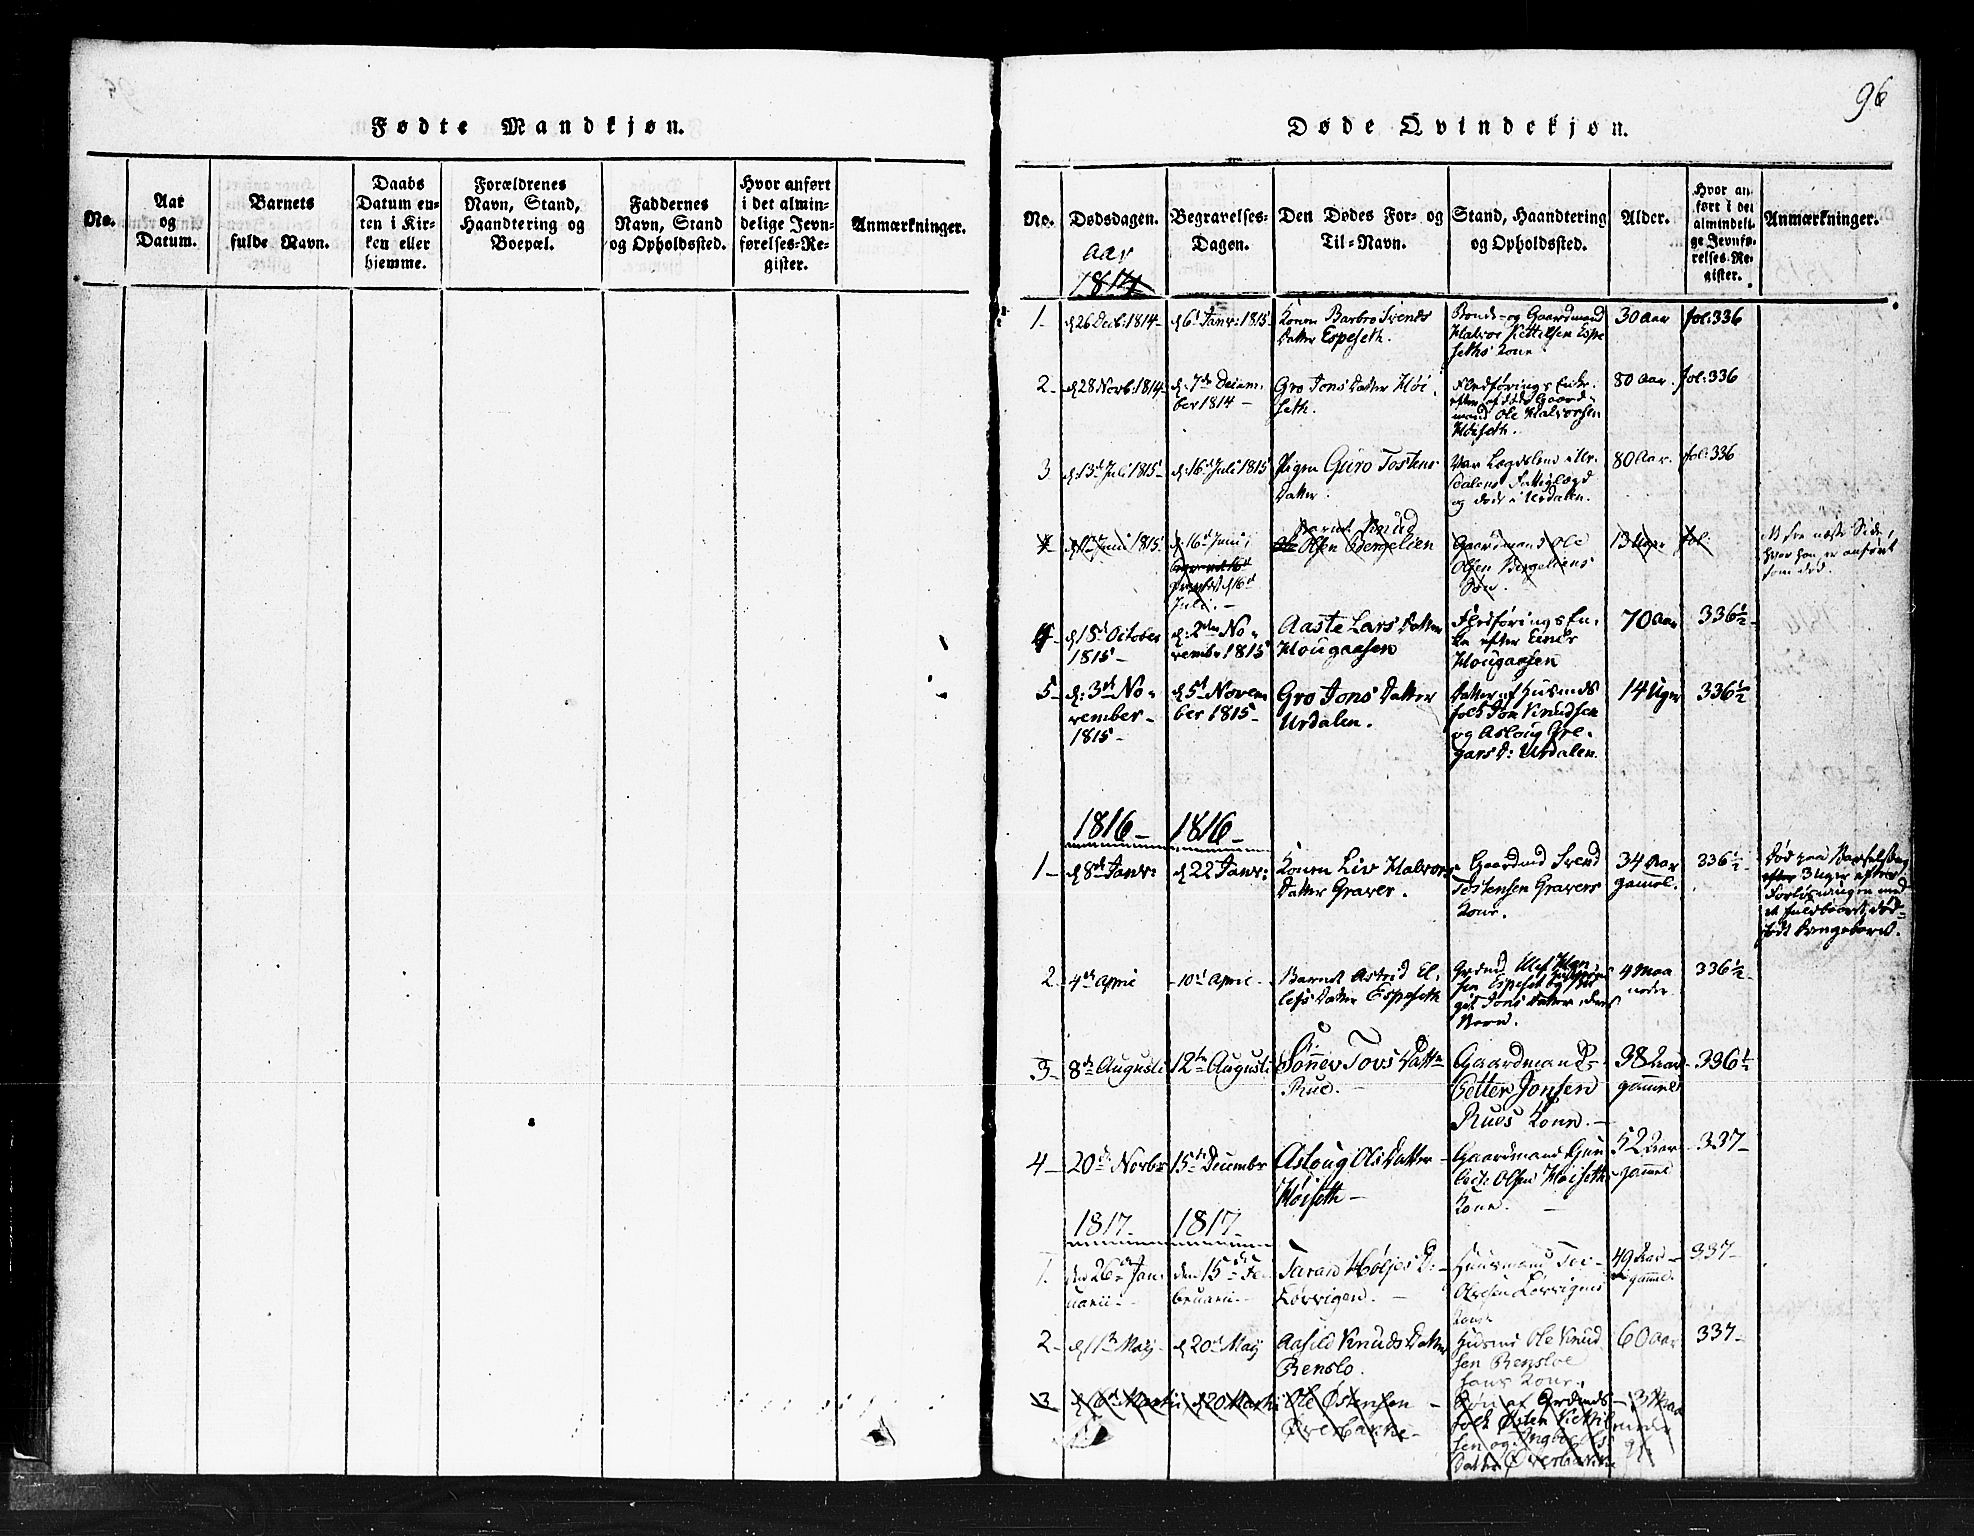 96
Fødte Mandkjøn.
No.
Aar
og
Datum.
Barnets
fulde Navn.
Daabs
Datum en-
ten i Kir-
ken eller
hjemme.
Forældrenes
Navn, Stand,
Haandtering og
Boepæl.
Faddernes
Navn, Stand
og Opholdssted.
Hvor anført
i det almin-
delige Jevn-
førelses-Re-
gister.
Anmærkninger.
Døde Qvindekjøn.
No.
Dødsdagen.
Begravelses-
Dagen.
Den Dødes For- og
Til-Navn.
Stand, Haandtering
og Opholdssted.
Alder.
Hvor an-
ført i det
almindeli-
ge Jevnfø-
relses-Re-
gister.
Anmærkninger.
Aar
1814
1
d 26 Decb: 1814
d 6t Janr: 1815
Konen Barbro Svends
Datter Espeseth.
Bonde- og Gaardmand
Halvor Kettilsen Espe
seths Kone
30 Aar
fol: 336
2
d 28 Novb: 1814
d: 7de Decem-
ber 1814
Gro Jons Datter Høi
seth.
Flødførings Enke
efter afdøde Gaard-
mand Ole Halvorsen
Høiseth.
80 Aar.
fol: 336
3
d: 13d Juli 1815
d: 16d Juli 1815
Pigen Guro Tostens
Datter.
Var Lægdslem i Ur-
dalens Fattiglægd
og døde i Urdalen.
80 Aar.
fol: 336
4
d 1d Juni 1815
d: 16d Juni
d 16d
Juli.
Barnet Knud
Olsen Bergelien
Gaardmand Ole
Olsen Bergeliens
Søn.
13 Uger
fol:
NB see næste Side,
hvor han er anført
som død.
4
d 18d October
1815
d: 2den No-
vembr 1815
Aaste Lars Datter
Hougaasen
Flødførings En-
ke efter Einer
Hougaasen
70 Aar
336½
5
d: 3d No-
vember
1815
d 5d Novem
ber 1815
Gro Jons Datter
Urdalen.
Datter af Husmds
folk Jon Knudsen
og Asloug Gre-
gars D: Urdalen.
14 Uger
336½
1816
1816
1
d 8d Janr:
d 22 Janr:
Konen Liv Halvors
Datter Graver.
Gaardmd Svend
Tostensen Gravers
Kone.
34 Aar
gamel.
336½
Død paa Barselseng
efter 3 Uger efter
Forløsningen med
et fuldbaaret død-
født Drengebarn.
2
4de April
10d April
Barnet Astrid El-
lefs Datter Espeseth
Grdmd Ellef Han
sen Espeset og
Jons Datter deres
Barn.
4 Maa
neder
336½
3
8de Augusti
12te Augusti
Sønnev Tovs Datter
Rue.
Gaardmand
Petter Jonsen
Rues Kone.
38 Aar
gammel
336½
4
20de Novbr
15de Decembr
Asloug Ols Datter
Høiseth
Gaardmand Gun
Olsen Høiseths
Kone.
52 Aar
gammel
337
1817
1817
1.
den 26de Jan-
uarii
den 15de Fe-
bruarii
Tarand Høljes D:
Lørvigen.
Huusmand Tov
Olsen Lørvigens
Kone
49 Aar
gammel.
337
2
d 11te Maij
d 20de Maij
Aasild Knuds Datter
Renslo.
Husmd Ole Knud
sen Rensloe
hans Kone.
60 Aar
337
3
d 6d Martii
d 20 Martii
Ole Østensen
Øverbakke
Søn af Grdmds
folk Østen Kettil
sen og Ingbor
Datter Øverbakke
3 Maa
neder